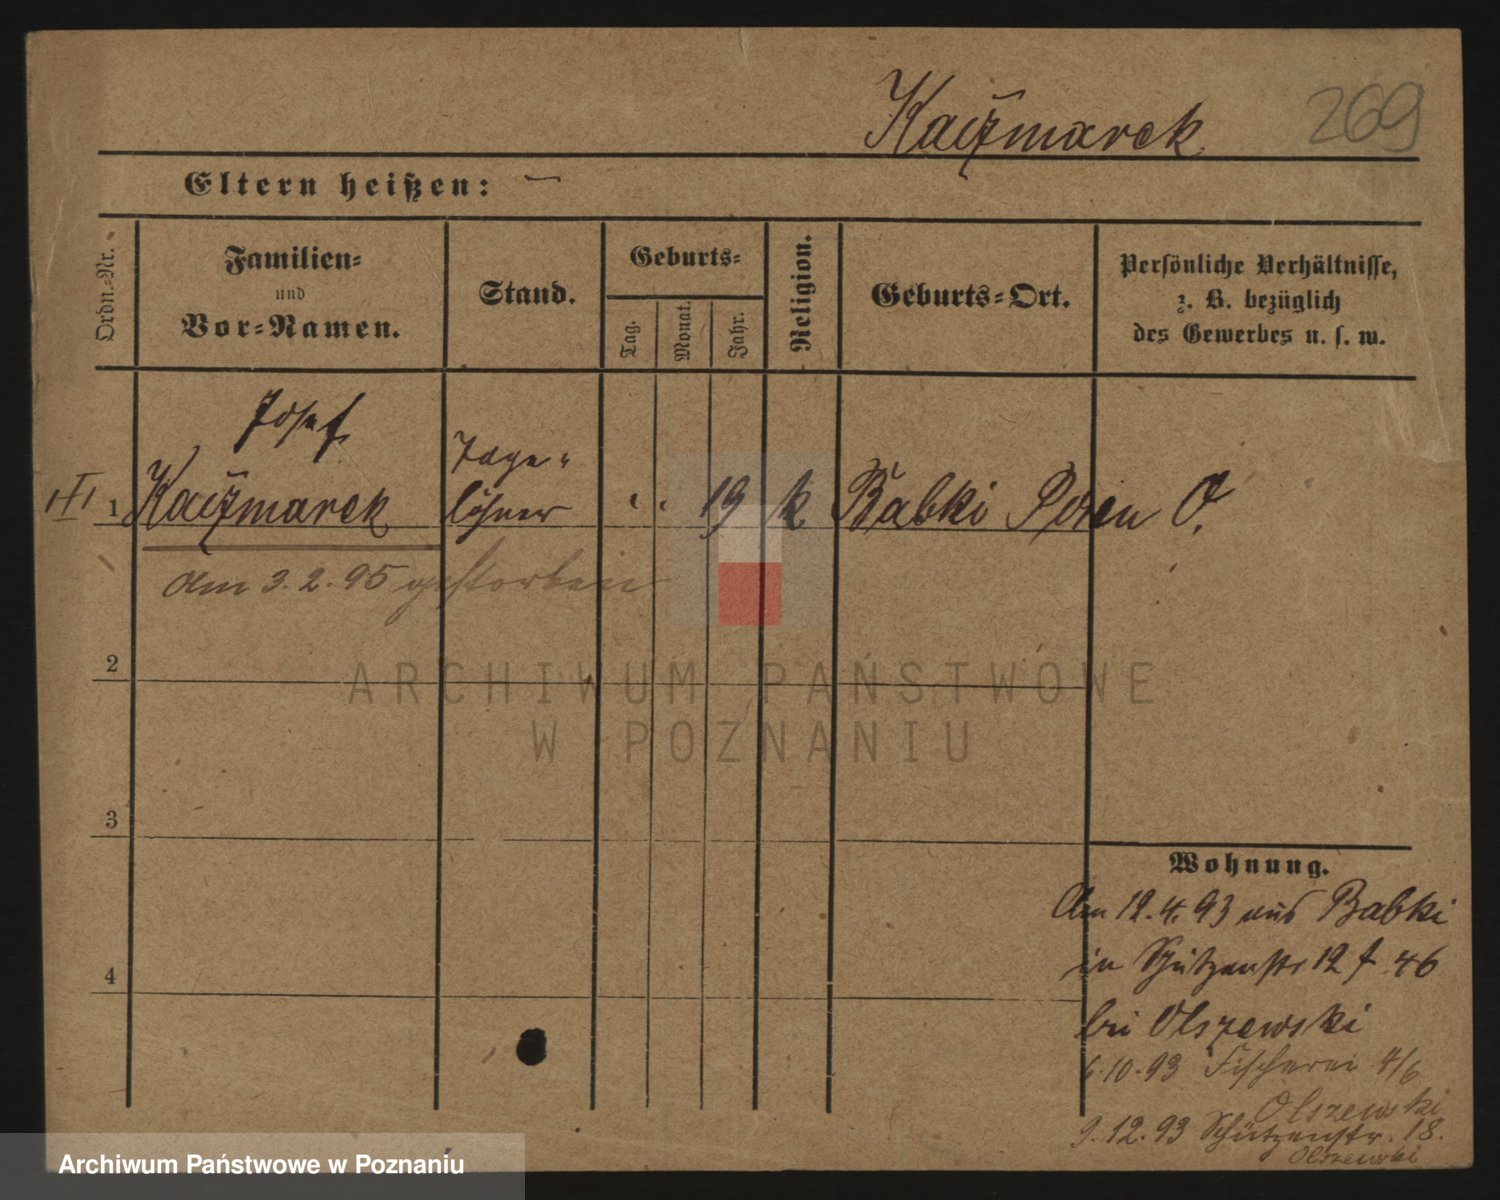 Kaczmarek 269
Eltern heißen: —
Ordn.-Nr.
Familien-
und
Vor-Namen.
Stand.
Geburts-
Tag.
Monat.
Jahr.
Religion.
Geburts-Ort.
Persönliche Verhältnisse,
z. B. bezüglich
des Gewerbes u. s. w.
Josef
1 Kaczmarek
Tage-
löhner
19 k Babki Posen O.
am 3.2.95 gestorben
2
3
4
Wohnung.
Am 12.4.93 aus Babki
in Schützenstr 12 f. 46
bei Olszewski
6.10.93 Fischerei 4/6
Olszewski
9.12.93 Schützenstr. 18.
Olszewski
ARCHIWUM PAŃSTWOWE
W POZNANIU
Archiwum Państwowe w Poznaniu